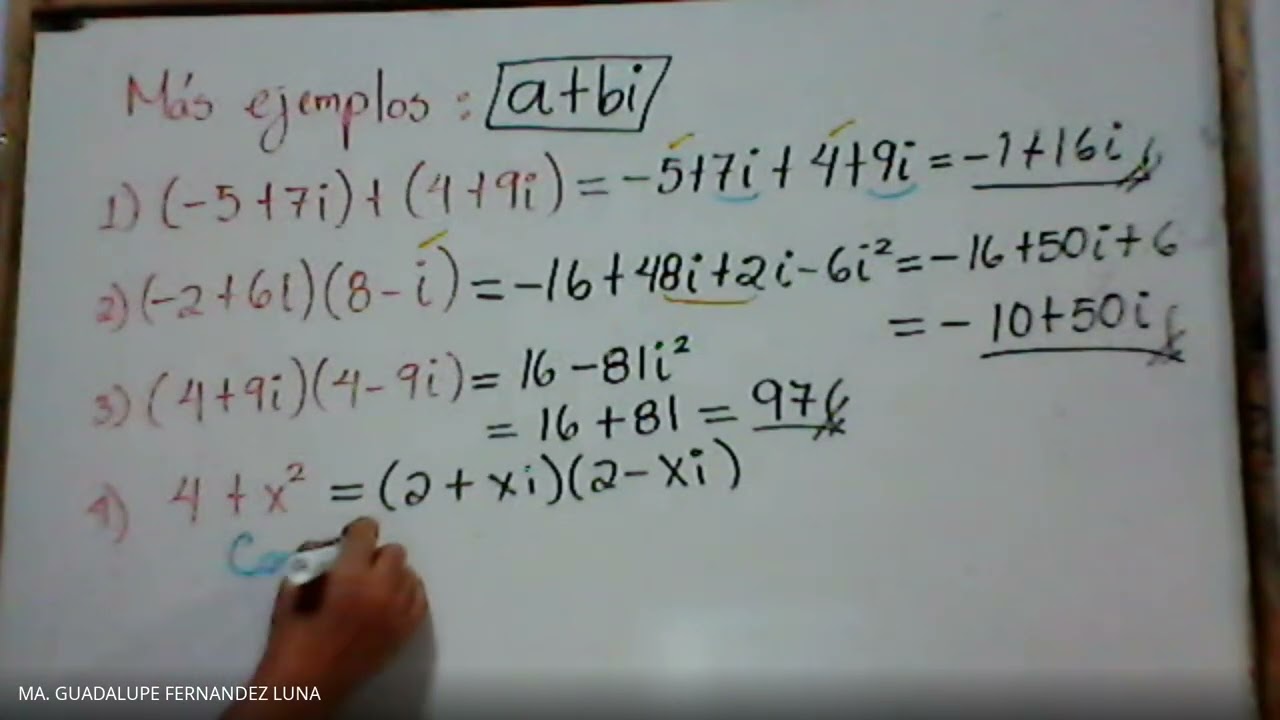 Más ejemplos: a+bi
1) (-5+7i)+(4+9i)=-5+7i+4+9i=-1+16i
2) (-2+6i)(8-i)=-16+48i+2i-6i²=-16+50i+6
=-10+50i
3) (4+9i)(4-9i)=16-81i²
=16+81=97
4) 4+x²=(2+xi)(2-xi)
MA. GUADALUPE FERNANDEZ LUNA